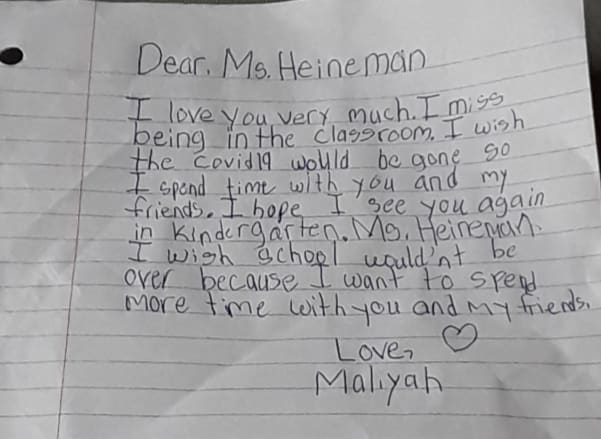 Dear. Ms. Heineman
I love you very much. I miss
being in the classroom. I wish
the covid19 would be gone so
I spend time with you and my
friends. I hope I see you again
in Kindergarten. Ms. Heineman.
I wish school would'nt be
over because I want to spend
more time with you and my friends.
Love,
Maliyah